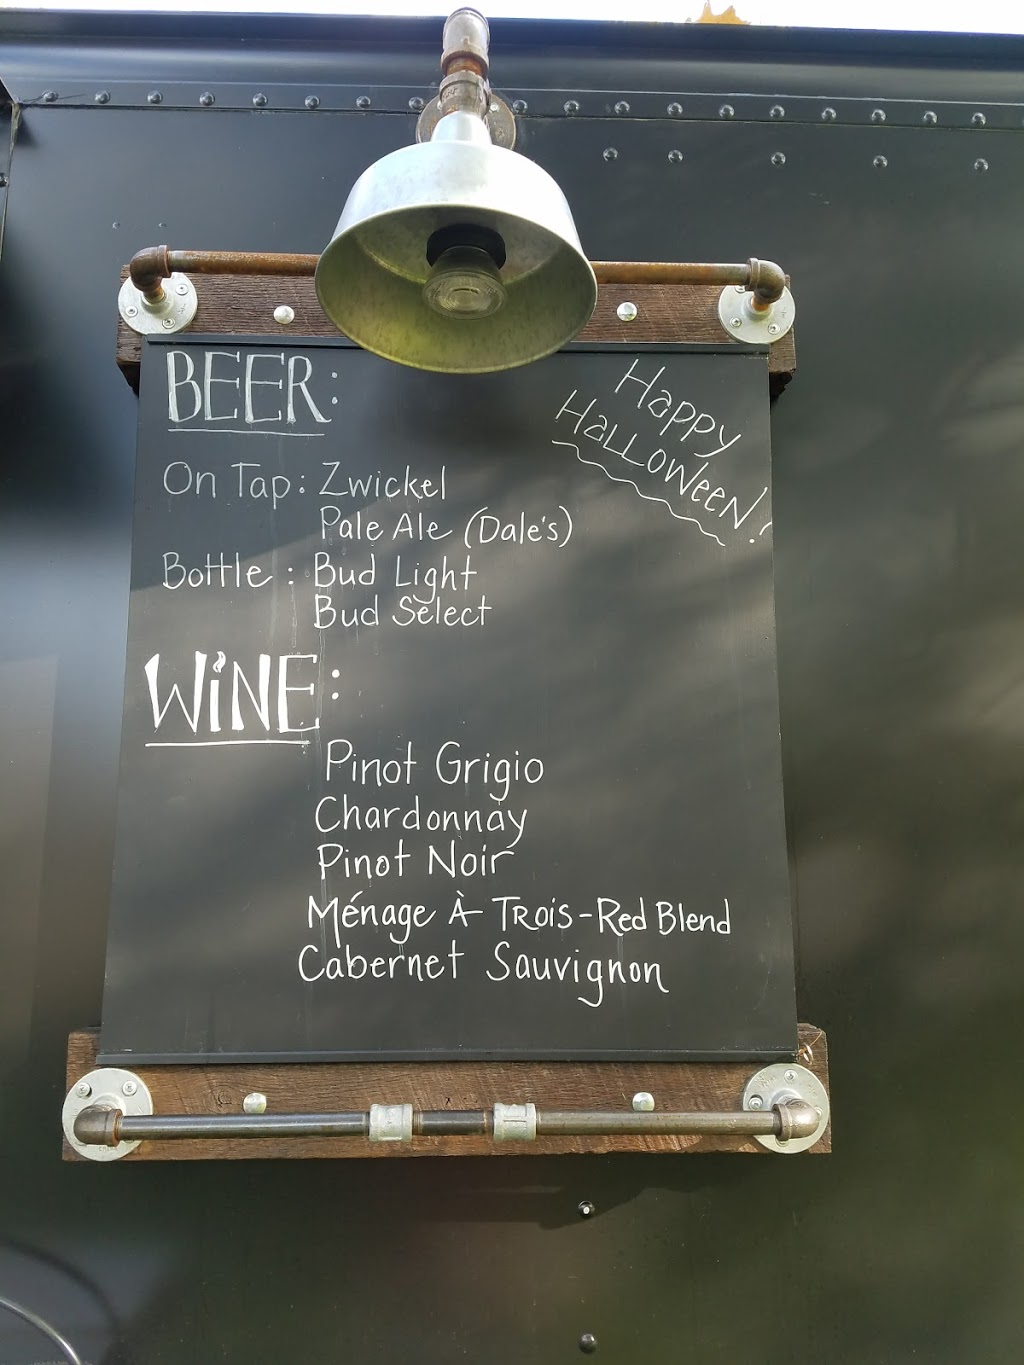 BEER:
Happy
Halloween!
On Tap: Zwickel
Pale Ale (Dale's)
Bottle: Bud Light
Bud Select
WiNE:
Pinot Grigio
Chardonnay
Pinot Noir
Ménage À Trois-Red Blend
Cabernet Sauvignon